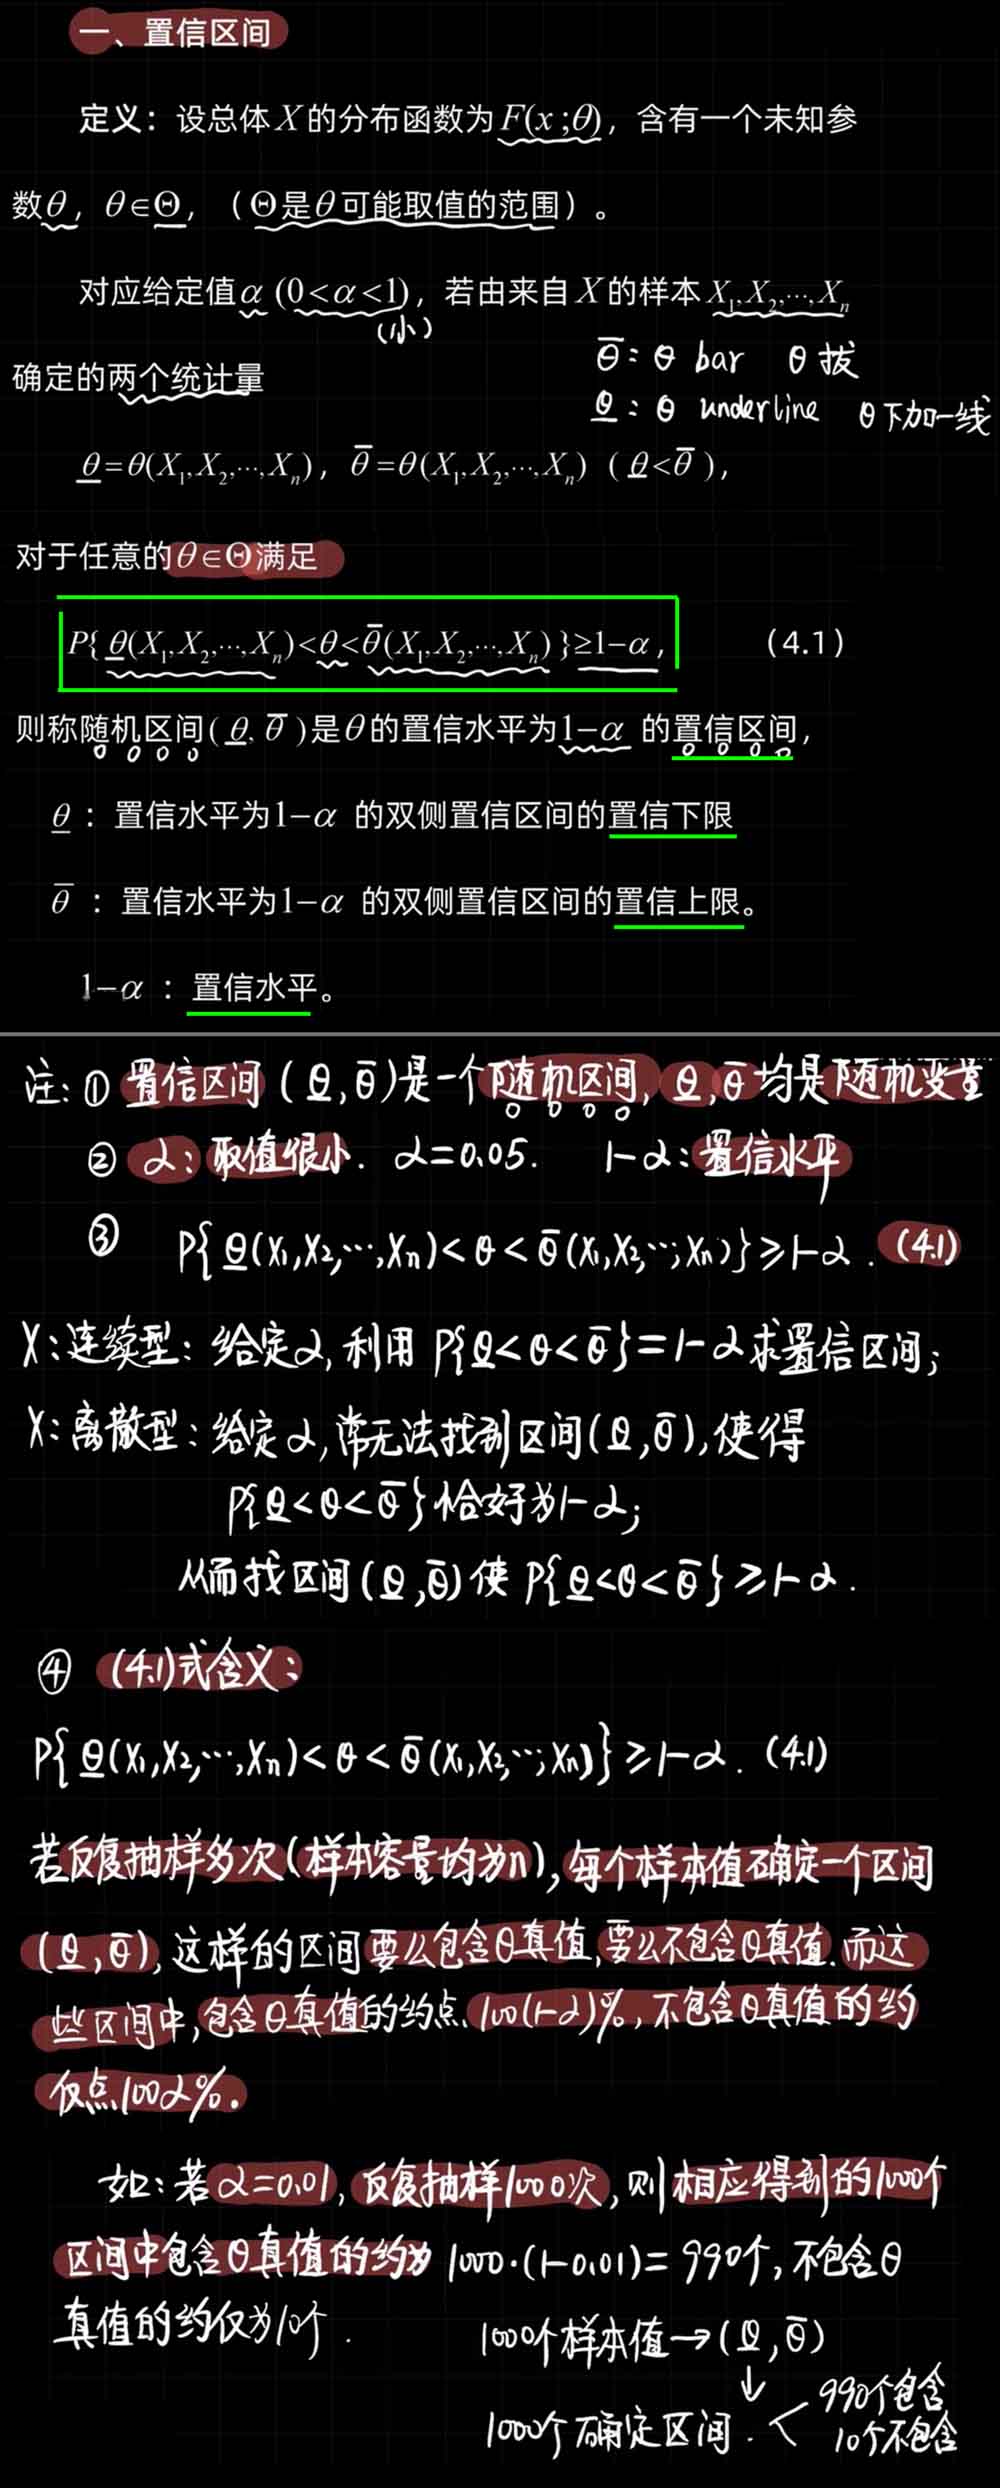 一、置信区间
定义：设总体X的分布函数为F(x;θ)，含有一个未知参
数θ，θ∈Θ，（Θ是θ可能取值的范围）。
对应给定值α (0<α<1)，若由来自X的样本X₁,X₂,…,Xₙ
(小)
θ̅：θ bar θ拔
确定的两个统计量
θ̲：θ underline θ下加一线
θ̲=θ(X₁,X₂,…,Xₙ)，θ̅=θ(X₁,X₂,…,Xₙ)（θ̲<θ̅），
对于任意的θ∈Θ满足
P{θ̲(X₁,X₂,…,Xₙ)<θ<θ̅(X₁,X₂,…,Xₙ)}≥1−α，（4.1）
则称随机区间(θ̲,θ̅)是θ的置信水平为1−α的置信区间，
θ̲：置信水平为1−α的双侧置信区间的置信下限
θ̅：置信水平为1−α的双侧置信区间的置信上限。
1−α：置信水平。
注：① 置信区间(θ̲,θ̅)是一个随机区间，θ̲,θ̅均是随机变量
② α：取值很小. α=0.05. 1-α：置信水平
③ P{θ̲(X₁,X₂,…,Xₙ)<θ<θ̅(X₁,X₂,…,Xₙ)}≥1-α. (4.1)
X：连续型：给定α，利用P{θ̲<θ<θ̅}=1-α求置信区间；
X：离散型：给定α，常无法找到区间(θ̲,θ̅)，使得
P{θ̲<θ<θ̅}恰好为1-α；
从而找区间(θ̲,θ̅)使P{θ̲<θ<θ̅}≥1-α.
④ (4.1)式含义：
P{θ̲(X₁,X₂,…,Xₙ)<θ<θ̅(X₁,X₂,…,Xₙ)}≥1-α. (4.1)
若反复抽样多次(样本容量均为n)，每个样本值确定一个区间
(θ̲,θ̅)，这样的区间要么包含θ真值，要么不包含θ真值.而这
些区间中，包含θ真值的约占100(1-α)%，不包含θ真值的约
仅占100α%.
如：若α=0.01，反复抽样1000次，则相应得到的1000个
区间中包含θ真值的约为1000·(1-0.01)=990个，不包含θ
真值的约仅为10个.
1000个样本值→(θ̲,θ̅)
↓
990个包含
1000个确定区间.<
10个不包含